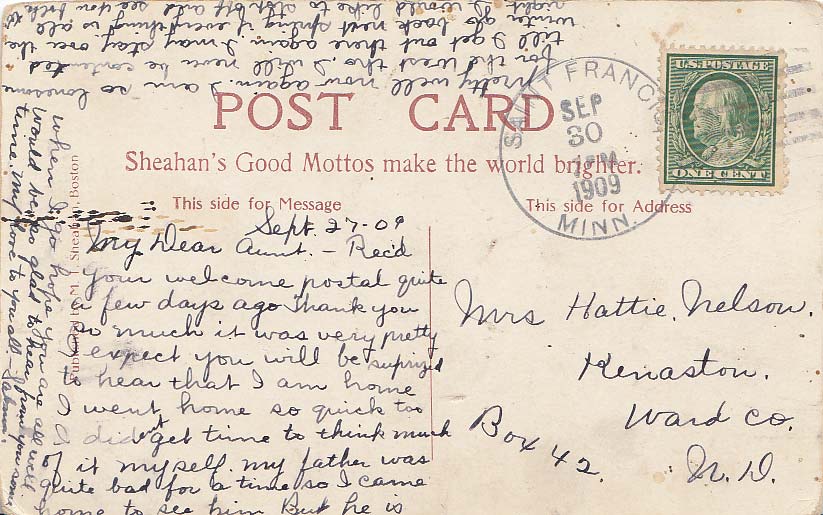 POST CARD
Sheahan's Good Mottos make the world brighter.
This side for Message
This side for Address
Sheahan, Boston
U.S. POSTAGE
ONE CENT
SAINT FRANCIS
SEP
30
1909
MINN.
Sept. 27-09
My Dear Aunt. – Rec'd
your welcome postal quite
a few days ago Thank you
so much it was very pretty
I expect you will be surprized
to hear that I am home
I went home so quick too
I didn't get time to think much
of it myself. my father was
quite bad for a time so I came
home to see him But he is
pretty well now again. I am so lonesome
for the West tho, I will never be contented
till I get out there again. I may stay over the
winter go back next spring if everything is all
right I would like to stop off and see you folks
when I go hope you are all well
would be so glad to hear from you some
time. My love to you all
Mrs Hattie. Nelson.
Kenaston.
Ward co.
Box 42.
N. D.